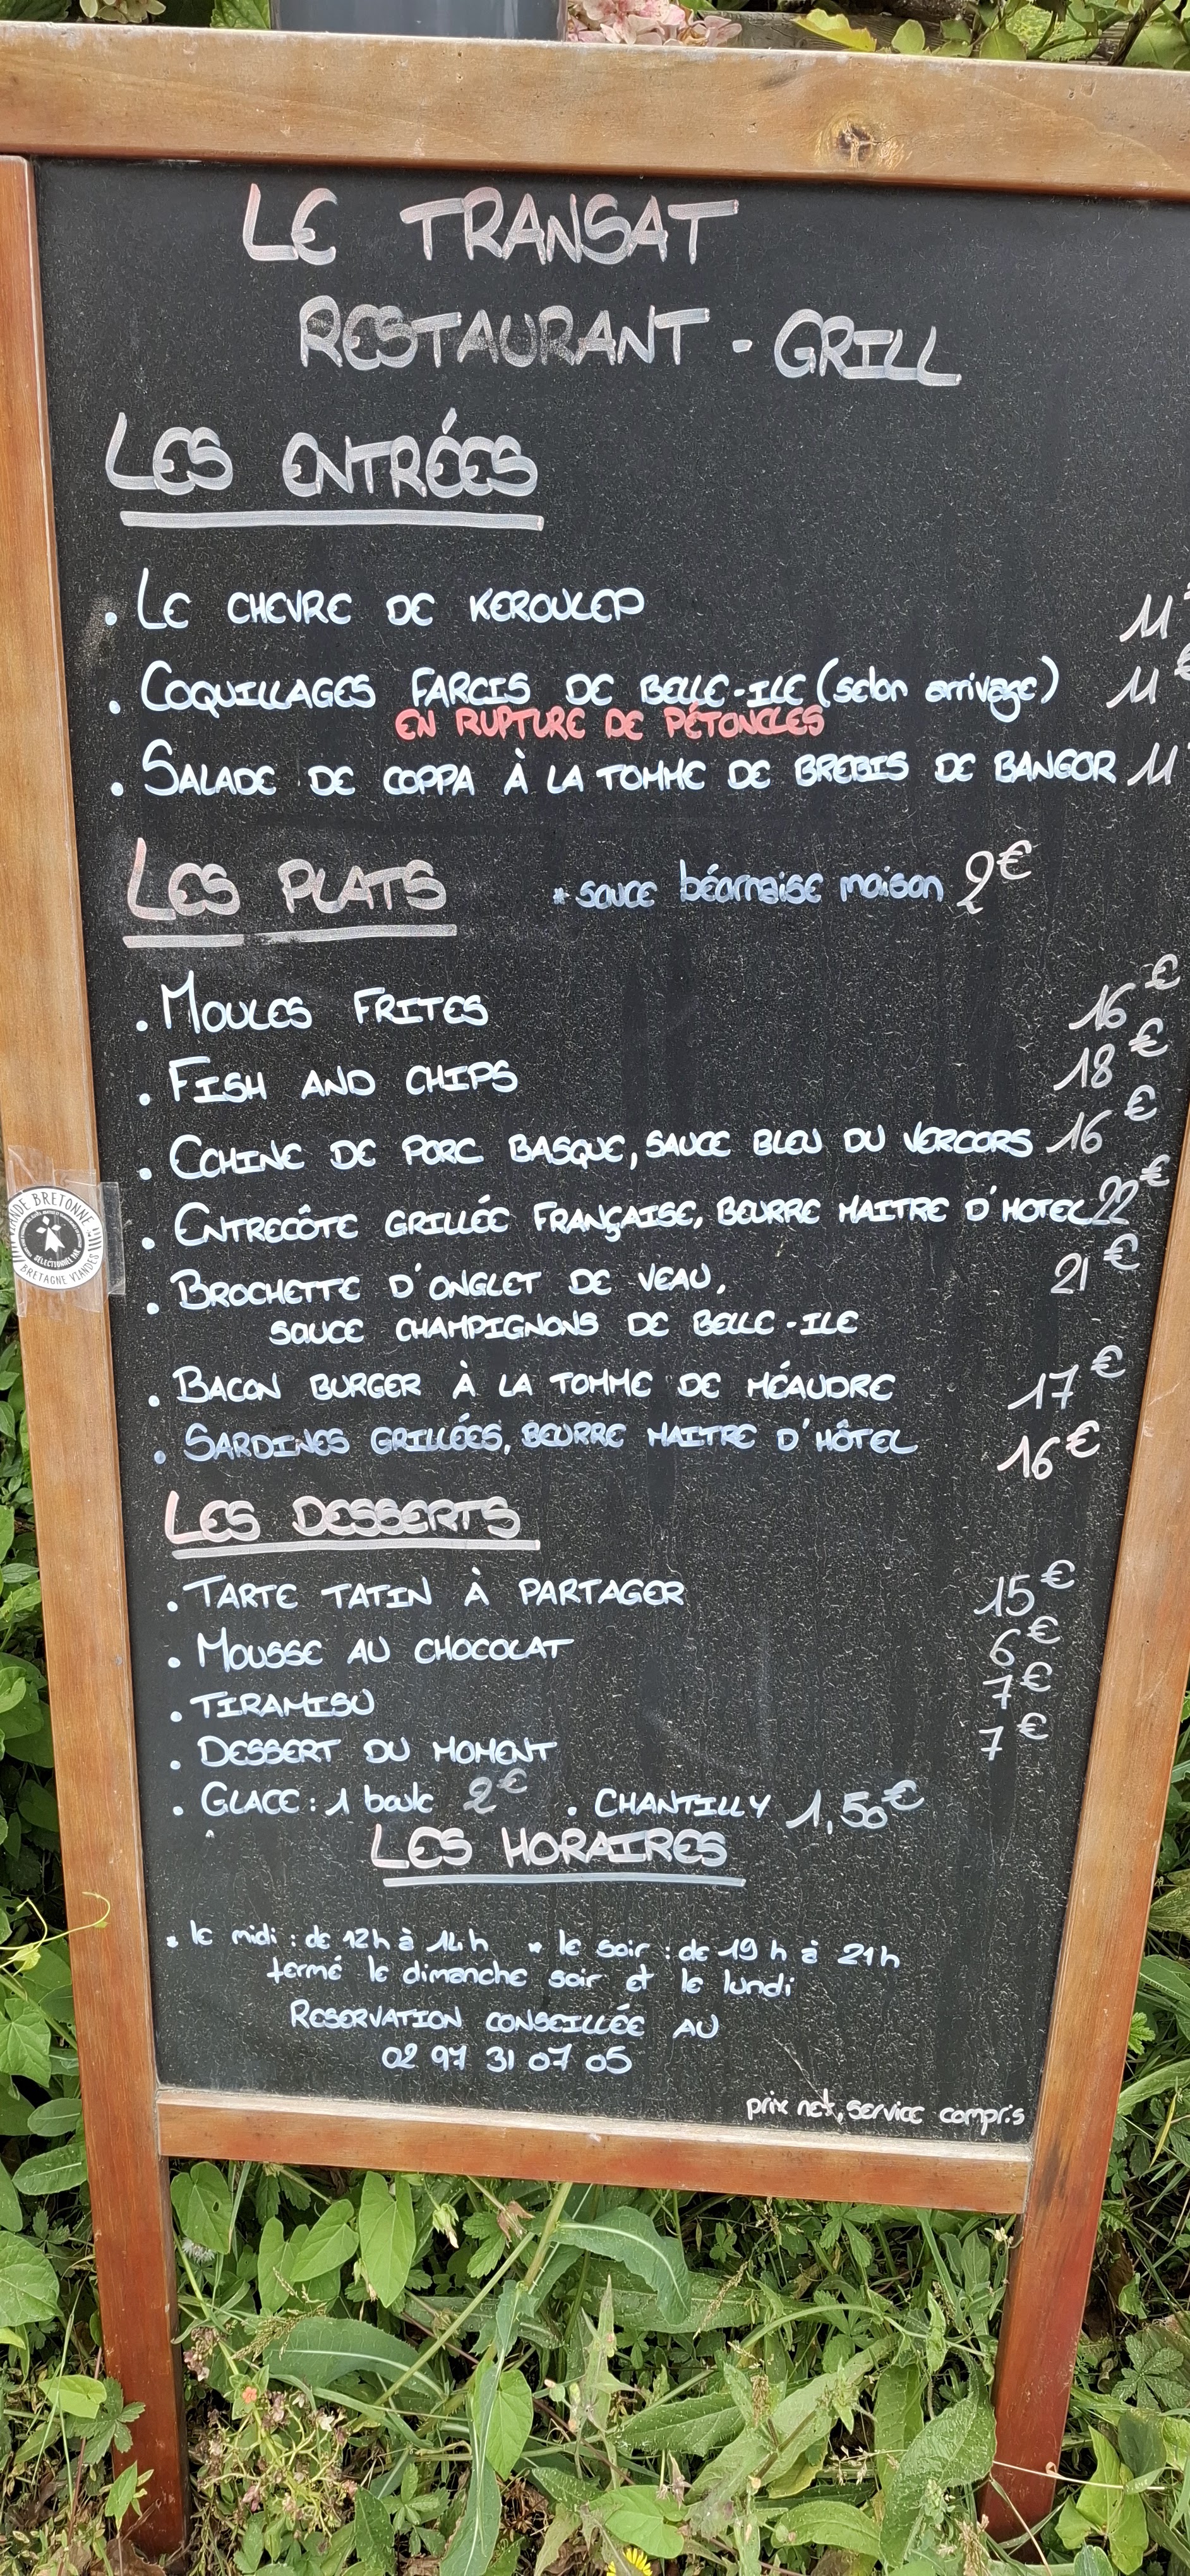 LE TRANSAT
RESTAURANT - GRILL
LES ENTRÉES
. LE CHEVRE DE KEROULEP 11
. COQUILLAGES FARCIS DE BELLE-ILE (selon arrivage) 11€
EN RUPTURE DE PÉTONCLES
. SALADE DE COPPA À LA TOMME DE BREBIS DE BANGOR 11
LES PLATS * sauce béarnaise maison 2€
. MOULES FRITES 16€
. FISH AND CHIPS 18€
. ECHINE DE PORC BASQUE, SAUCE BLEU DU VERCORS 16€
. ENTRECÔTE GRILLÉE FRANÇAISE, BEURRE MAITRE D'HOTEL 22€
. BROCHETTE D'ONGLET DE VEAU, 21€
SAUCE CHAMPIGNONS DE BELLE-ILE
. BACON BURGER À LA TOMME DE MÉAUDRE 17€
. SARDINES GRILLÉES, BEURRE MAITRE D'HÔTEL 16€
LES DESSERTS
. TARTE TATIN À PARTAGER 15€
. MOUSSE AU CHOCOLAT 6€
. TIRAMISU 7€
. DESSERT DU MOMENT 7€
. GLACE : 1 boule 2€ . CHANTILLY 1,50€
LES HORAIRES
* le midi : de 12h à 14h * le soir : de 19h à 21h
fermé le dimanche soir et le lundi
RESERVATION CONSEILLÉE AU
02 97 31 07 05
prix net, service compris
ANDE BRETONNE
SÉLECTIONNÉ PAR
BRETAGNE VIANDES